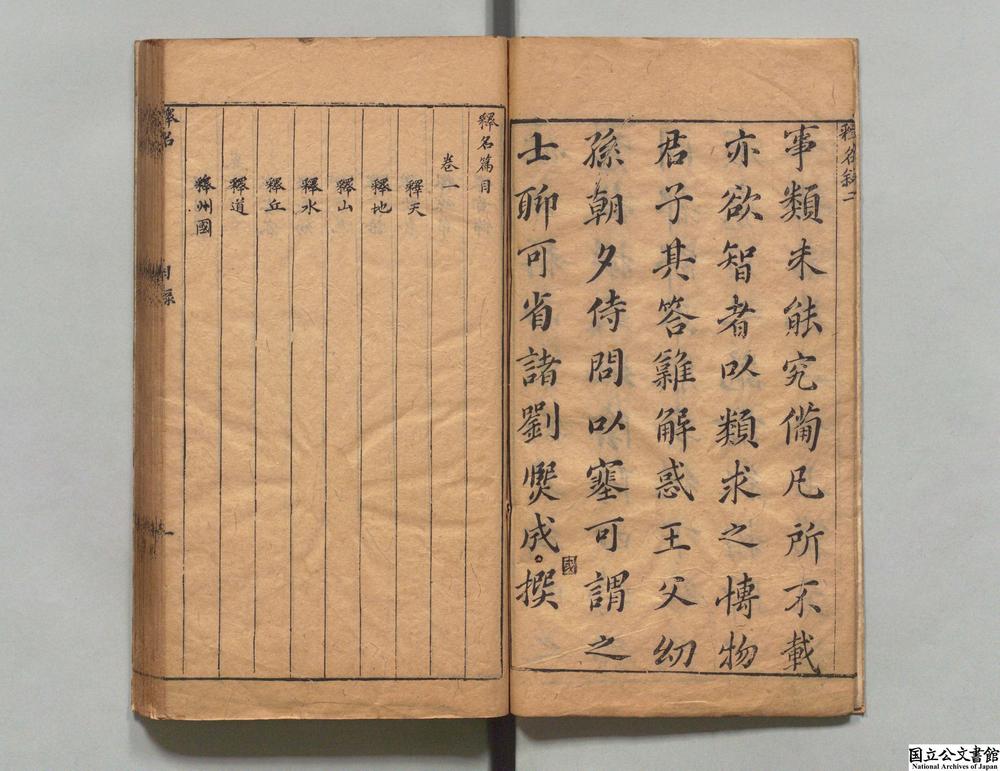 釋名叙二
事類未能究備凡所不載
亦欲智者以類求之愽物
君子其答難解惑王父㓜
孫朝夕侍問以塞可謂之
士聊可省諸劉熈成。撰
國
釋名篇目
卷一
釋天
釋地
釋山
釋水
釋丘
釋道
釋州國
釋名
目録
一
国立公文書館
National Archives of Japan